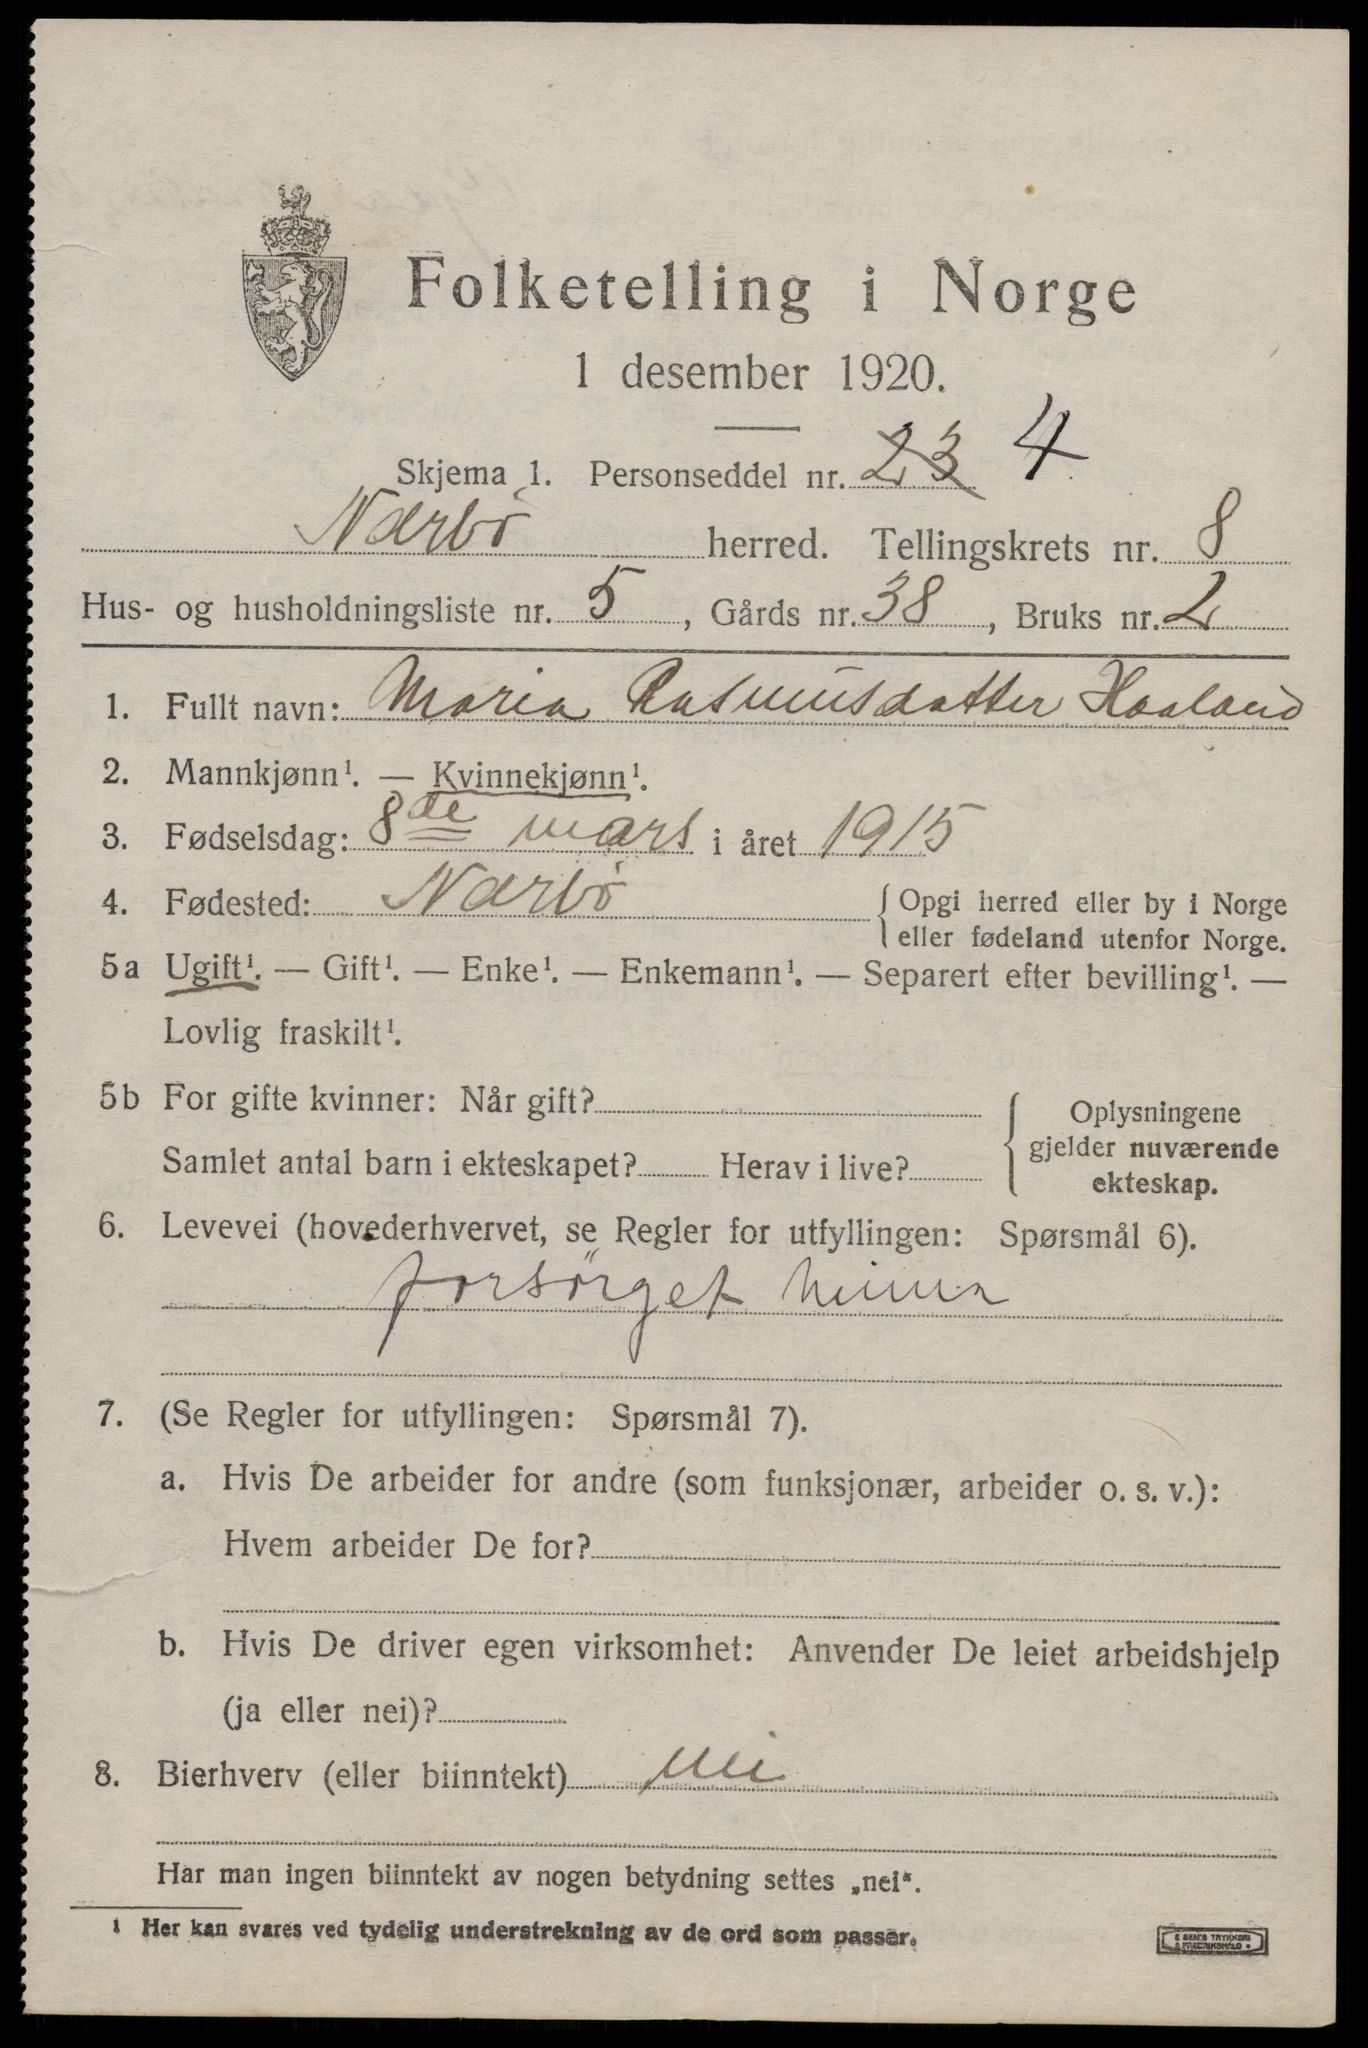 Folketelling i Norge
1 desember 1920.
Skjema 1. Personseddel nr. 23 4
Nærbö herred. Tellingskrets nr. 8
Hus- og husholdningsliste nr. 5, Gårds nr. 38, Bruks nr. 2
1. Fullt navn: Maria Rasmusdatter Haaland
2. Mannkjønn¹. — Kvinnekjønn¹.
3. Fødselsdag: 8de mars i året 1915
4. Fødested: Nærbö { Opgi herred eller by i Norge
eller fødeland utenfor Norge.
5a Ugift¹. — Gift¹. — Enke¹. — Enkemann¹. — Separert efter bevilling¹. —
Lovlig fraskilt¹.
5b For gifte kvinner: Når gift?
Samlet antal barn i ekteskapet? Herav i live?
Oplysningene
gjelder nuværende
ekteskap.
6. Levevei (hovederhvervet, se Regler for utfyllingen: Spørsmål 6).
forsörget
7. (Se Regler for utfyllingen: Spørsmål 7).
a. Hvis De arbeider for andre (som funksjonær, arbeider o. s. v.):
Hvem arbeider De for?
b. Hvis De driver egen virksomhet: Anvender De leiet arbeidshjelp
(ja eller nei)?
8. Bierhverv (eller biinntekt) nei
Har man ingen biinntekt av nogen betydning settes „nei“.
¹ Her kan svares ved tydelig understrekning av de ord som passer.